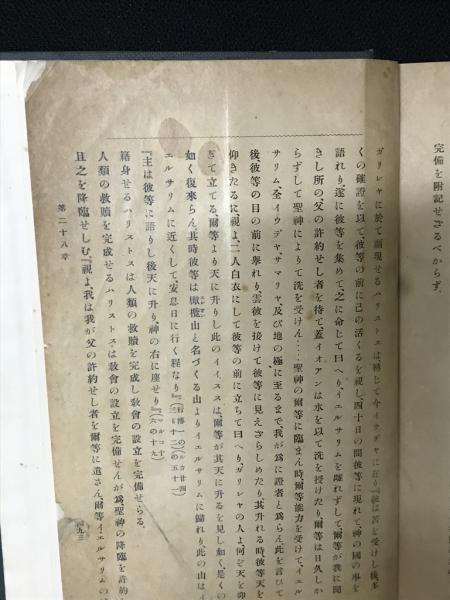 完備を附記せざるべからず、
ガリレヤに於て顯現せるハリストスは、轉じて今イウデヤに在り『彼は苦を受けし後多
くの確證を以て、彼等の前に己の活くるを視し、四十日の間彼等に現れて、神の國の事を
語れり、遂に彼等を集めて、之に命じて曰へり、イエルサリムを離れずして、爾等が我に聞
きし所の、父の許約せし者を待て、蓋イオアンは水を以て洗を授けたり、爾等は日久しか
らずして聖神によりて洗を受けん‥‥‥聖神の爾等に臨まん時爾等能力を受けて、イエル
サリム、全イウデヤ、サマリヤ、及び地の極に至るまで、我が爲に證者と爲らん、此を言ひて
後、彼等の目の前に擧れり、雲彼を接けて彼等に見えざらしめたり、其升れる時彼等天を
仰ぎたるに、視よ、二人白衣にして彼等の前に立ちて曰へり、ガリレヤの人よ、何ぞ天を仰
ぎて立てる、爾等より天に升りし此のイイススは、爾等が其天に升るを見し如く、是くの
如く復來らん、其時彼等は橄欖山と名づくる山よりイエルサリムに歸れり、此の山はイ
エルサリムに近くして、安息日に行く程なり』
『主は彼等に語りし後天に升り、神の右に座せり』
籍身せるハリストスは人類の救贖を完成し教會の設立を完備せらる、
人類の救贖を完成せるハリストスは教會の設立を完備せんが爲聖神の降臨を許約
且之を降臨せしむ、『視よ、我は我が父の許約せし者を爾等に遣さん、爾等イエルサリムの
第二十八章